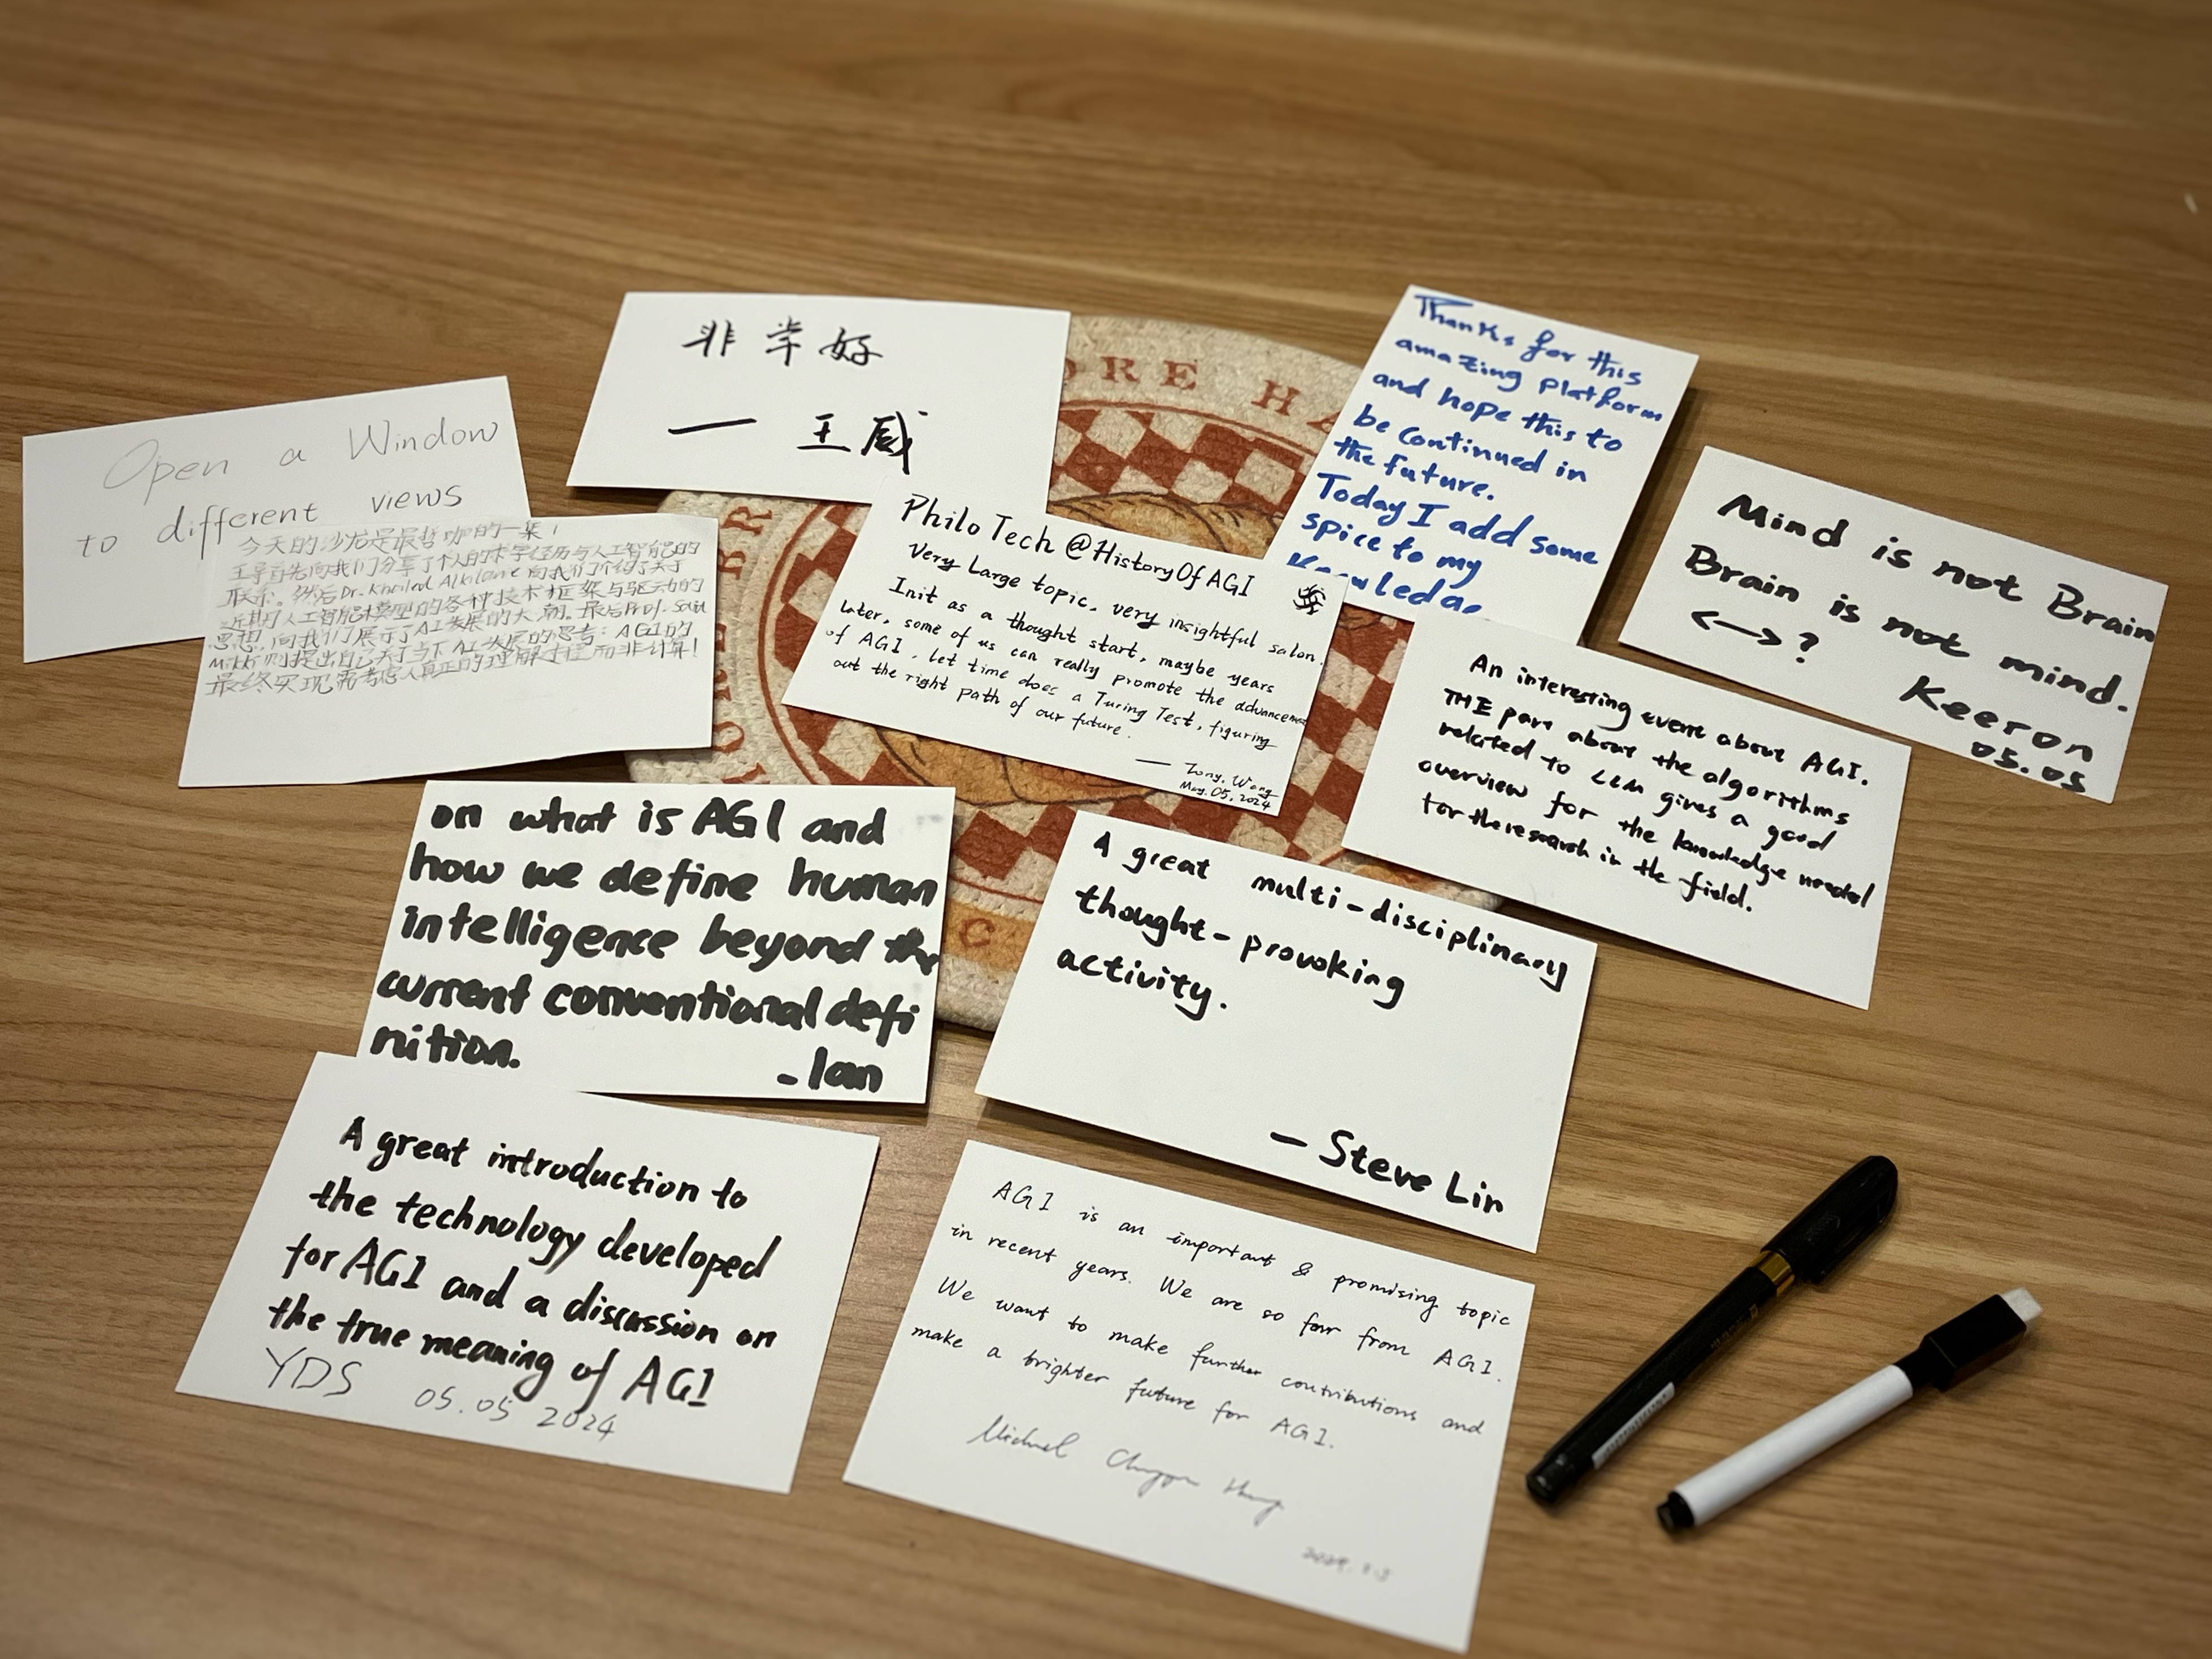 非常好
— 王威
Open a Window
to different views
今天的沙龙是最哲咖的一集!
王导首先向我们分享了个人的求学经历与人工智能的
联系。然后Dr. Khaled Alkilane 向我们介绍了关于
近期的人工智能模型的各种技术框架与驱动的
思想,向我们展示了AI发展的大潮。最后Prof. Saiu
则提出自己关于当下AI发展的思考:AGI的
最终实现需考虑人真正的理解过程而非计算!
Philo Tech @HistoryOfAGI
Very Large topic, very insightful salon.
Init as a thought start, maybe years
later, some of us can really promote the advancement
of AGI. let time does a Turing Test, figuring
out the right path of our future.
— Tony. Wang
May. 05, 2024
Thanks for this
amazing Platform
and hope this to
be continued in
the future.
Today I add some
spice to my
Mind is not Brain
Brain is not mind.
<—>?
Keeron
05.05
An interesting event about AGI.
THE part about the algorithms
related to LLM gives a good
overview for the knowledge needed
for the research in the field.
on what is AGI and
how we define human
intelligence beyond the
current conventional defi
nition.
- Ian
A great multi-disciplinary
thought-provoking
activity.
— Steve Lin
A great introduction to
the technology developed
for AGI and a discussion on
the true meaning of AGI
YDS 05.05 2024
AGI is an important & promising topic
in recent years. We are so far from AGI.
We want to make further contributions and
make a brighter future for AGI.
Michael
ORE HA